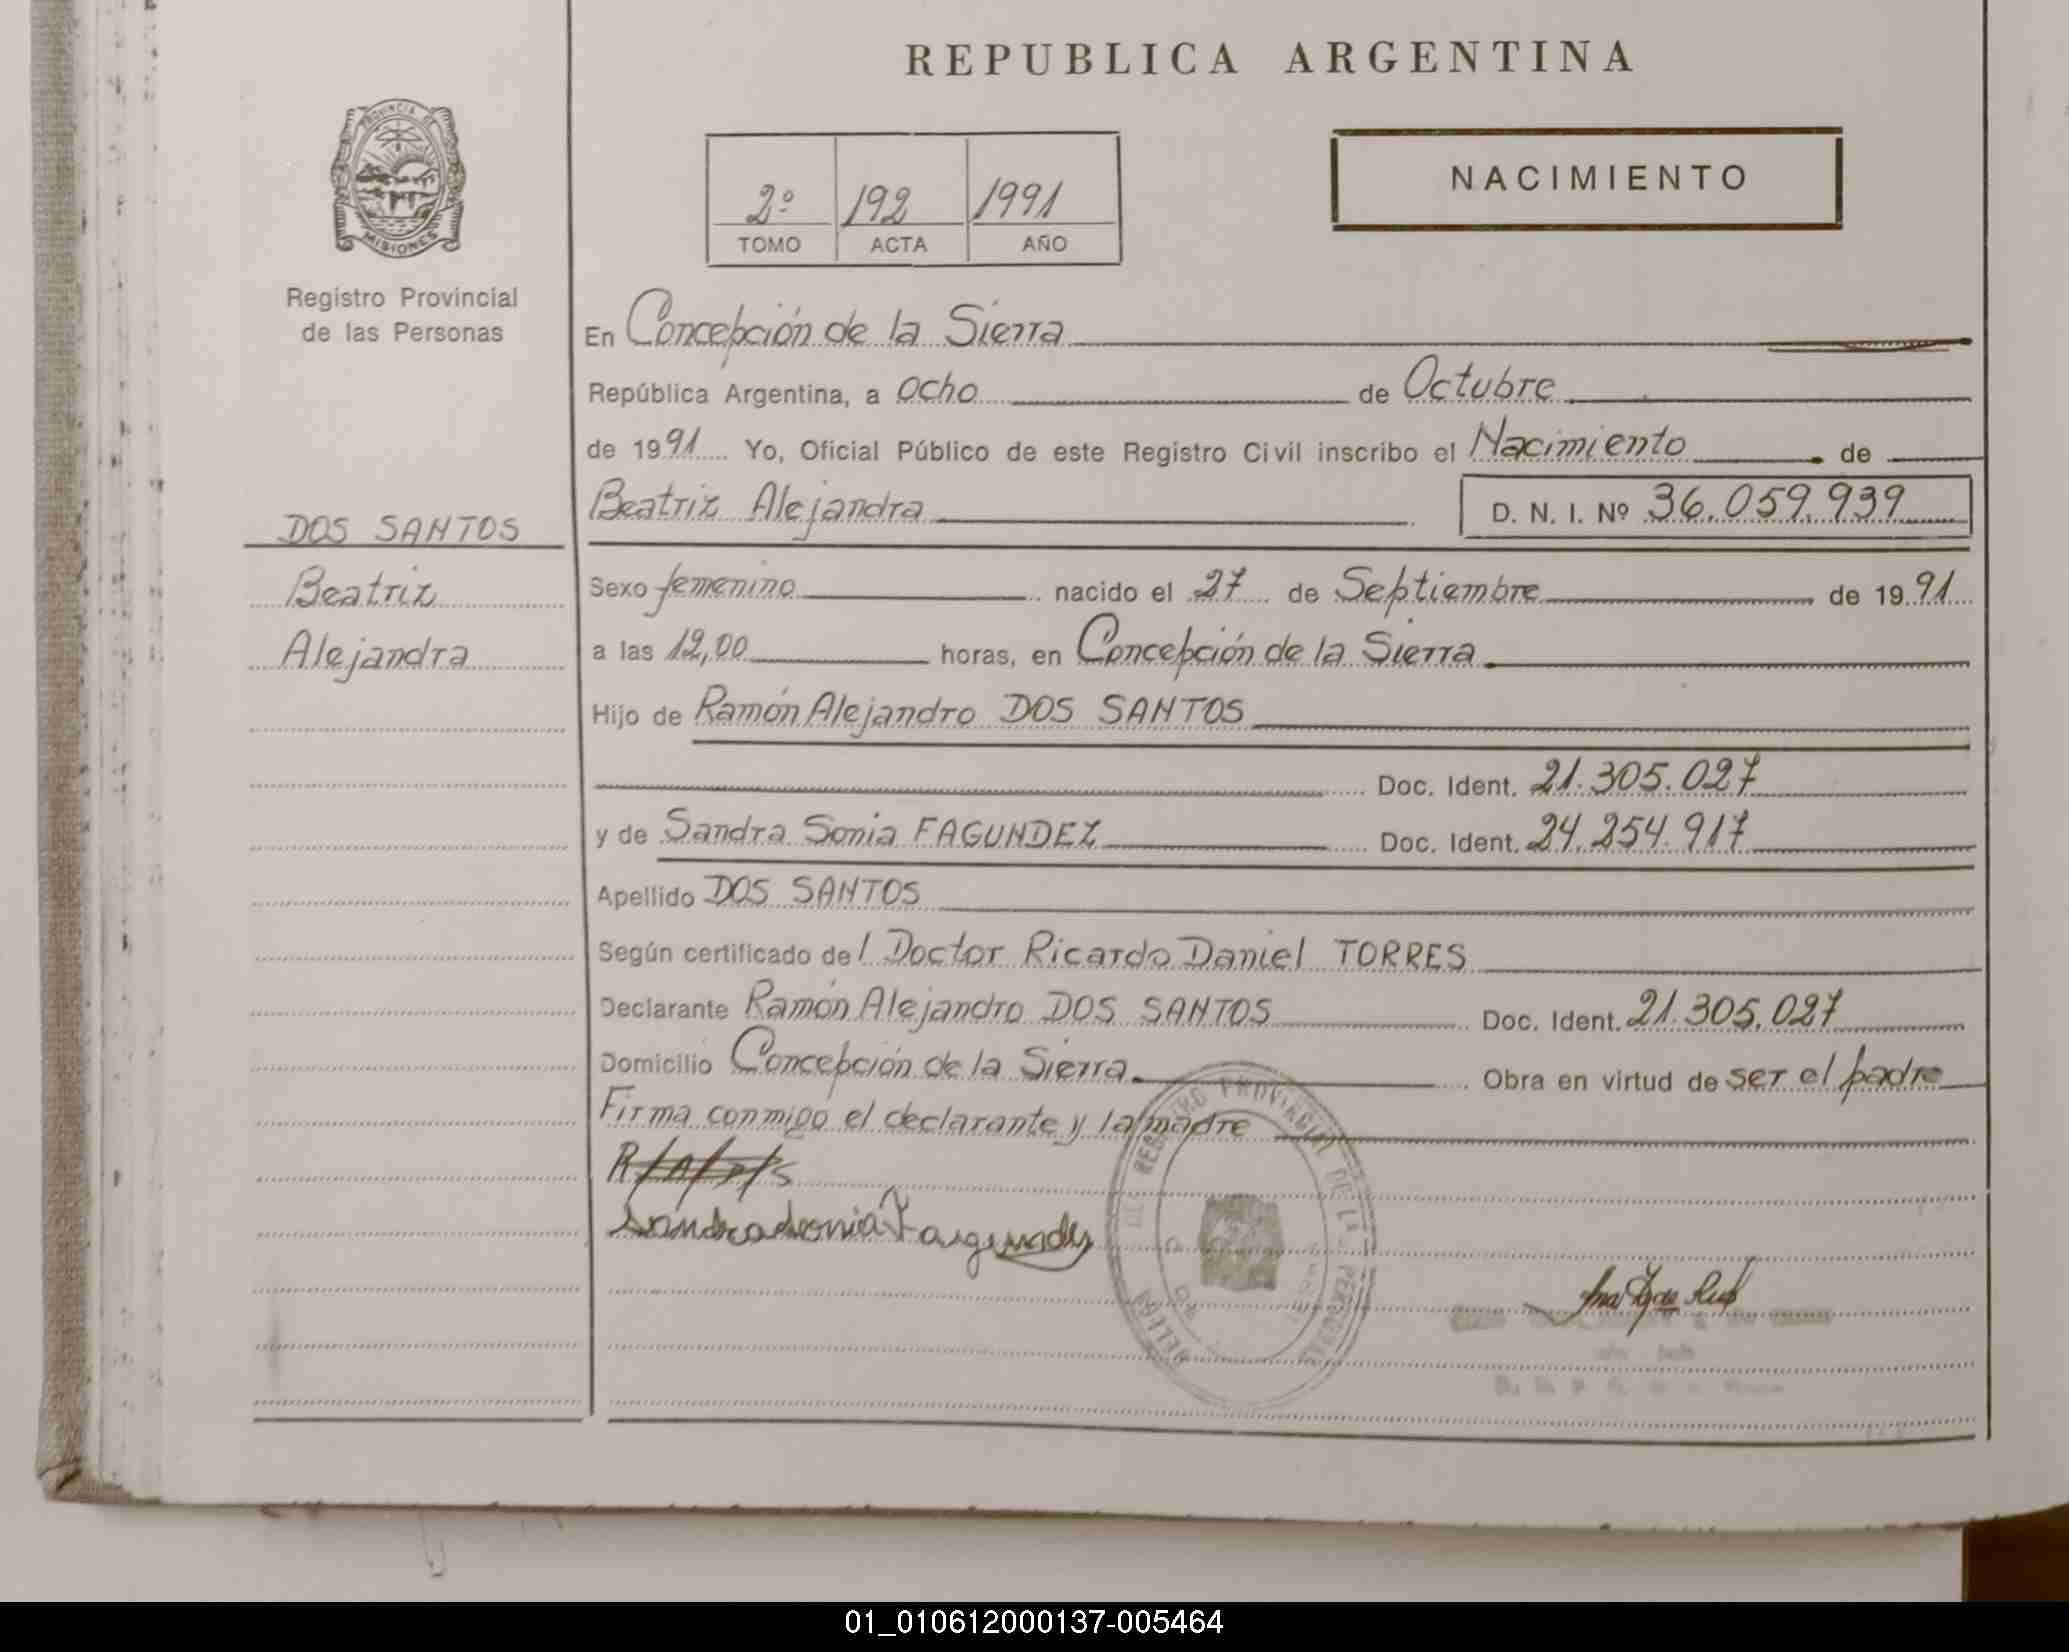 REPUBLICA ARGENTINA
PROVINCIA DE
MISIONES
Registro Provincial
de las Personas
2º 192 1991
TOMO ACTA AÑO
NACIMIENTO
DOS SANTOS
Beatriz
Alejandra
En Concepción de la Sierra
República Argentina, a ocho de Octubre
de 1991 Yo, Oficial Público de este Registro Civil inscribo el Nacimiento de
Beatriz Alejandra D. N. I. Nº 36.059.939
Sexo femenino nacido el 27 de Septiembre de 1991
a las 12,00 horas, en Concepción de la Sierra
Hijo de Ramón Alejandro DOS SANTOS
Doc. Ident. 21.305.027
y de Sandra Sonia FAGUNDEZ Doc. Ident. 24.254.917
Apellido DOS SANTOS
Según certificado del Doctor Ricardo Daniel TORRES
Declarante Ramón Alejandro DOS SANTOS Doc. Ident. 21.305.027
Domicilio Concepción de la Sierra Obra en virtud de ser el padre
Firma conmigo el declarante y la madre
REGISTRO PROVINCIAL DE LAS PERSONAS
01_010612000137-005464